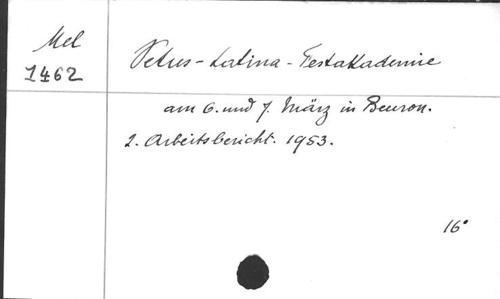 Mel
1462
Vetus-Latina-Festakademie
am 6. und 7. März in Beuron.
2. Arbeitsbericht. 1953.
16°